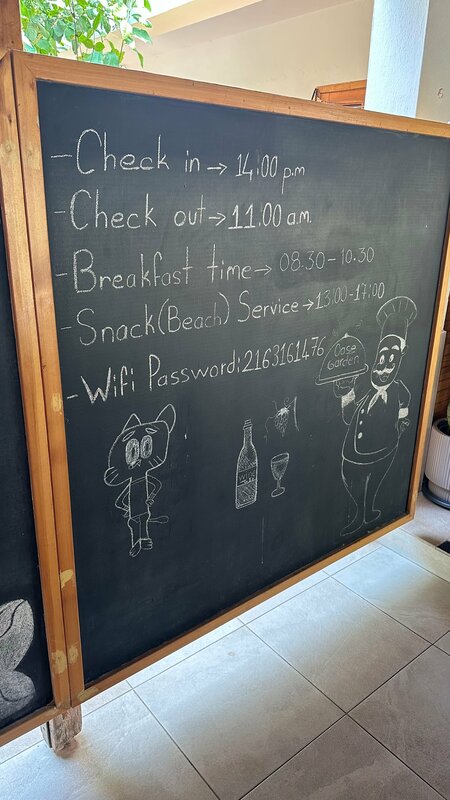 - Check in → 14:00 p.m
- Check out → 11.00 a.m.
- Breakfast time → 08.30 - 10.30
- Snack (Beach) Service → 13:00-17:00
- Wifi Password: 2163161476
Oase
Garden
WINE